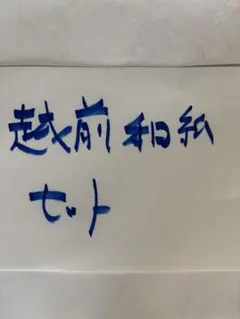 越前和紙
セット